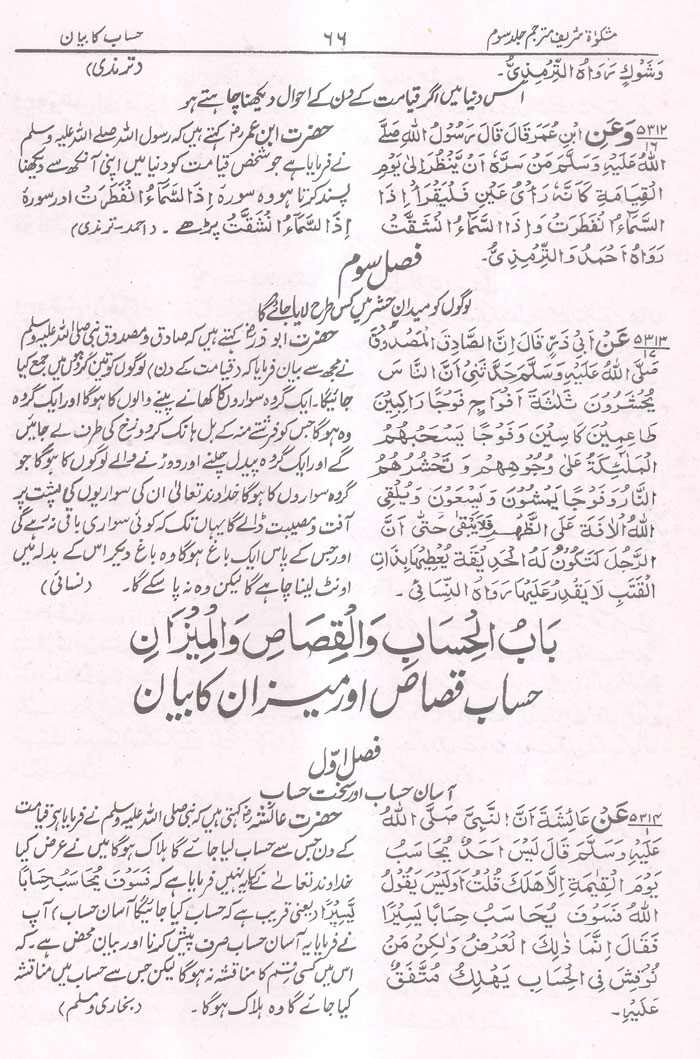 مشکوٰۃ شریف مترجم جلد سوم
۶۶
حساب کا بیان
وَشَوْکٍ رَوَاہُ التِّرْمِذِیُّ۔
(ترمذی)
اس دنیا میں اگر قیامت کے دن کے احوال دیکھنا چاہتے ہو
۵۳۱۲/۱۶ وَعَنِ ابْنِ عُمَرَ قَالَ قَالَ رَسُوْلُ اللّٰهِ صَلَّے
اللّٰهُ عَلَیْهِ وَسَلَّمَ مَنْ سَرَّهٗ اَنْ یَّنْظُرَ اِلٰی یَوْمِ
الْقِیَامَةِ کَاَنَّهٗ رَاْیُ عَیْنٍ فَلْیَقْرَأْ اِذَا
السَّمَاءُ انْفَطَرَتْ وَاِذَا السَّمَاءُ انْشَقَّتْ
رَوَاهُ اَحْمَدُ وَالتِّرْمِذِیُّ۔
حضرت ابن عمر رض کہتے ہیں کہ رسول اللہ صلے اللہ علیہ وسلم
نے فرمایا ہے جو شخص قیامت کو دنیا میں اپنی آنکھ سے دیکھنا
پسند کرتا ہو وہ سورہ اِذَا السَّمَآءُ انْفَطَرَتْ اور سورہ
اِذَا السَّمَآءُ انْشَقَّتْ پڑھے۔ (احمد۔ترمذی)
فصل سوم
لوگوں کو میدانِ حشر میں کس طرح لایا جائے گا
۵۳۱۳/۱۷ عَنْ اَبِیْ ذَرٍّ قَالَ اِنَّ الصَّادِقَ الْمَصْدُوْقَ
صَلَّی اللّٰهُ عَلَیْهِ وَسَلَّمَ حَدَّثَنِیْ اَنَّ النَّاسَ
یُحْشَرُوْنَ ثَلٰثَةَ اَفْوَاجٍ فَوْجًا رَاکِبِیْنَ
طَاعِمِیْنَ کَاسِیْنَ وَفَوْجًا یَسْحَبُهُمُ
الْمَلٰئِکَةُ عَلٰی وُجُوْهِهِمْ وَتَحْشُرُهُمُ
النَّارُ وَفَوْجًا یَمْشُوْنَ وَیَسْعَوْنَ وَیُلْقِی
اللّٰهُ الْاٰفَةَ عَلَی الظَّهْرِ فَلَا یَبْقٰی حَتّٰی اَنَّ
الرَّجُلَ لَتَکُوْنُ لَهُ الْحَدِیْقَةُ یُعْطِیْهَا بِذَاتِ
الْقَتَبِ لَا یَقْدِرُ عَلَیْهَا رَوَاهُ النَّسَائِیُّ۔
حضرت ابو ذر رض کہتے ہیں کہ صادق و مصدوق نبی صلی اللہ علیہ وسلم
نے مجھ سے بیان فرمایا کہ (قیامت کے دن) لوگوں کو تین گروہوں میں جمع کیا
جائیگا۔ ایک گروہ سواروں کا کھانے پینے والوں کا ہوگا اور ایک گروہ
وہ ہوگا جس کو فرشتے منہ کے بل ہانک کر دوزخ کی طرف لے جائیں
گے اور ایک گروہ پیدل چلنے اور دوڑنے والے لوگوں کا ہوگا جو
گروہ سواروں کا ہوگا خداوند تعالیٰ ان کی سواریوں کی پشت پر
آفت و مصیبت ڈالے گا یہاں تک کہ کوئی سواری باقی نہ رہے گی
اور جس کے پاس ایک باغ ہوگا وہ باغ دیکر اس کے بدلہ میں
اونٹ لینا چاہے گا لیکن وہ نہ پا سکے گا۔ (نسائی)
بَابُ الْحِسَابِ وَالْقِصَاصِ وَالْمِیْزَانِ
حساب قصاص اور میزان کا بیان
فصل اوّل
آسان حساب اور سخت حساب
۵۳۱۴/۱ عَنْ عَائِشَةَ اَنَّ النَّبِیَّ صَلَّی اللّٰهُ
عَلَیْهِ وَسَلَّمَ قَالَ لَیْسَ اَحَدٌ یُّحَاسَبُ
یَوْمَ الْقِیٰمَةِ اِلَّا هَلَكَ قُلْتُ اَوَلَیْسَ یَقُوْلُ
اللّٰهُ فَسَوْفَ یُحَاسَبُ حِسَابًا یَّسِیْرًا
فَقَالَ اِنَّمَا ذٰلِكَ الْعَرْضُ وَلٰکِنْ مَنْ
نُوْقِشَ فِی الْحِسَابِ یَهْلِكُ مُتَّفَقٌ
عَلَیْهِ۔
حضرت عائشہ رض کہتی ہیں کہ نبی صلی اللہ علیہ وسلم نے فرمایا ہے قیامت
کے دن جس سے حساب لیا جائے گا ہلاک ہوگا میں نے عرض کیا
خداوند تعالےٰ نے کیا یہ نہیں فرمایا ہے کہ فَسَوْفَ یُحَاسَبُ حِسَابًا
یَّسِیْرًا (یعنی قریب ہے کہ حساب کیا جائیگا آسان حساب) آپ
نے فرمایا یہ آسان حساب صرف پیش کرنا اور بیان محض ہے۔ کہ
اس میں کسی قسم کا مناقشہ نہ ہوگا لیکن جس سے حساب میں مناقشہ
کیا جائے گا وہ ہلاک ہوگا۔ (بخاری و مسلم)